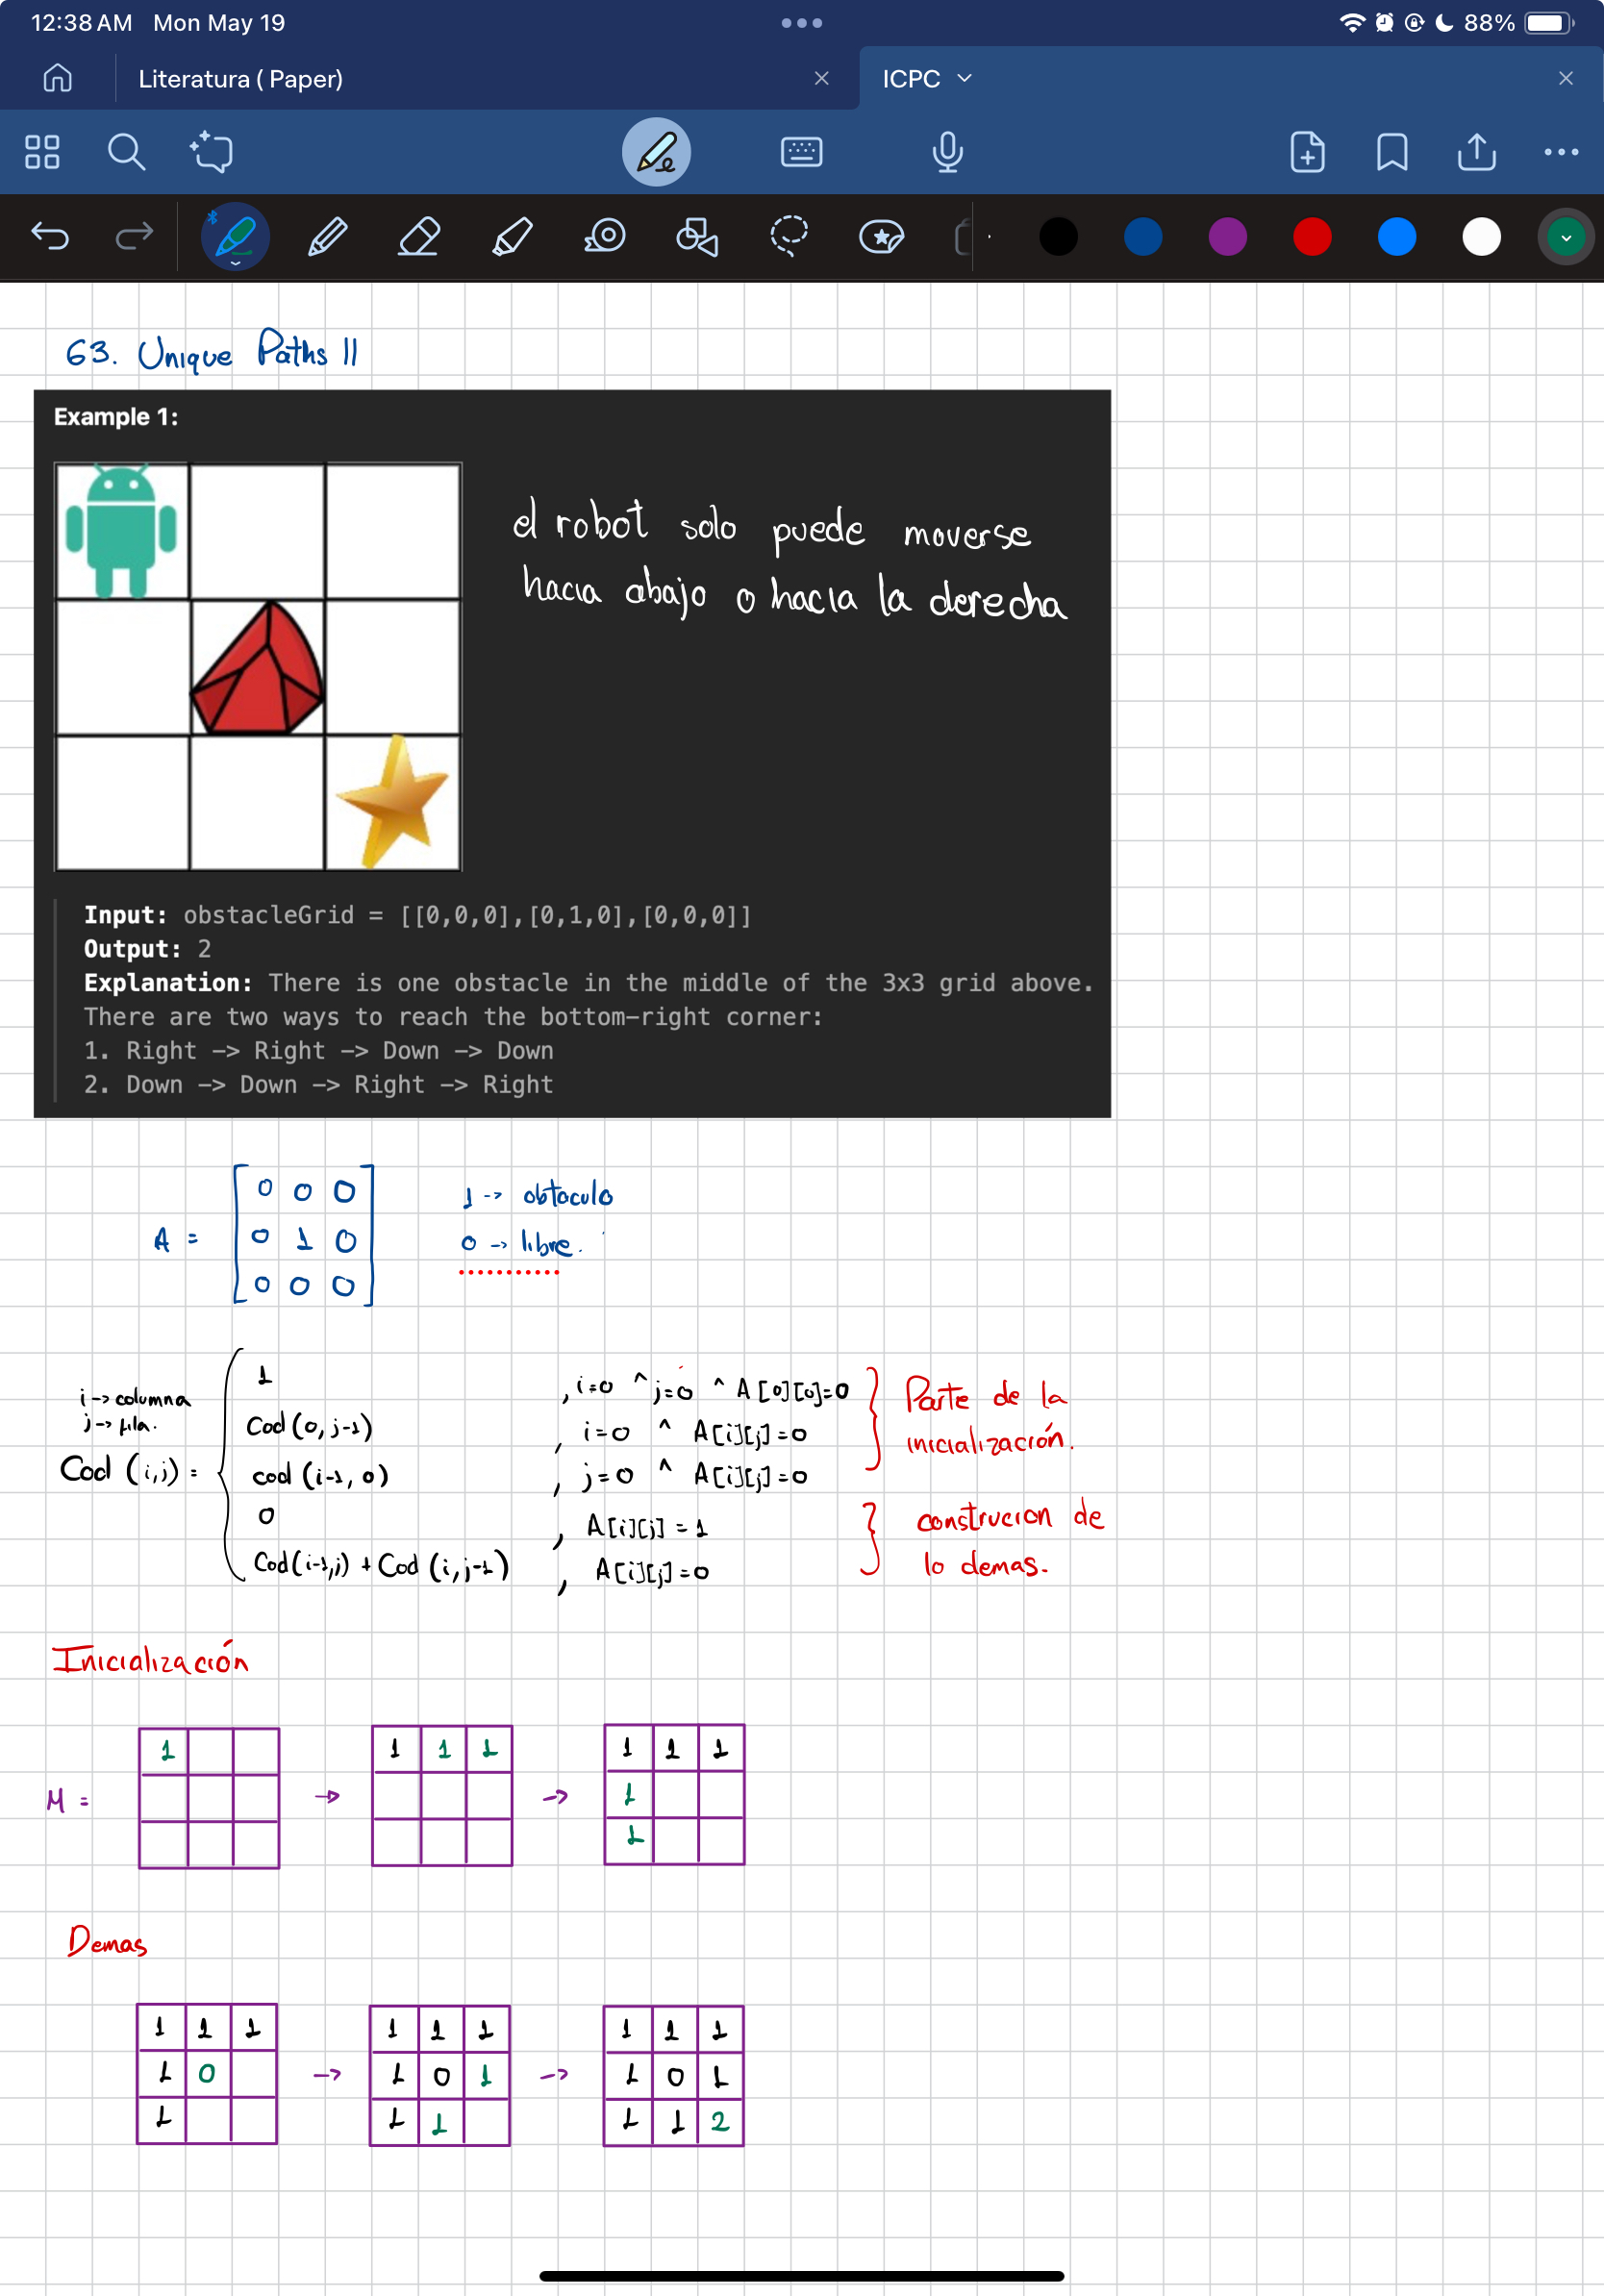 12:38 AM Mon May 19
88%
Literatura ( Paper)
ICPC
63. Unique Paths II
Example 1:
el robot solo puede moverse
hacia abajo o hacia la derecha
Input: obstacleGrid = [[0,0,0],[0,1,0],[0,0,0]]
Output: 2
Explanation: There is one obstacle in the middle of the 3x3 grid above.
There are two ways to reach the bottom-right corner:
1. Right -> Right -> Down -> Down
2. Down -> Down -> Right -> Right
0 0 0
A = 0 1 0
0 0 0
1 -> obtaculo
0 -> libre.
i -> columna
j -> fila.
Cod (i,j) =
1 , i=0 ^ j=0 ^ A[0][0]=0
Cod (0, j-1) , i=0 ^ A[i][j]=0
cod (i-1, 0) , j=0 ^ A[i][j]=0
0 , A[i][j] = 1
Cod(i-1,j) + Cod (i,j-1) , A[i][j]=0
Parte de la
inicialización.
construcion de
lo demas.
Inicialización
M =
1
-> 
1 1 1
->
1 1 1
1
1
Demas
1 1 1
1 0
1
->
1 1 1
1 0 1
1 1
->
1 1 1
1 0 1
1 1 2